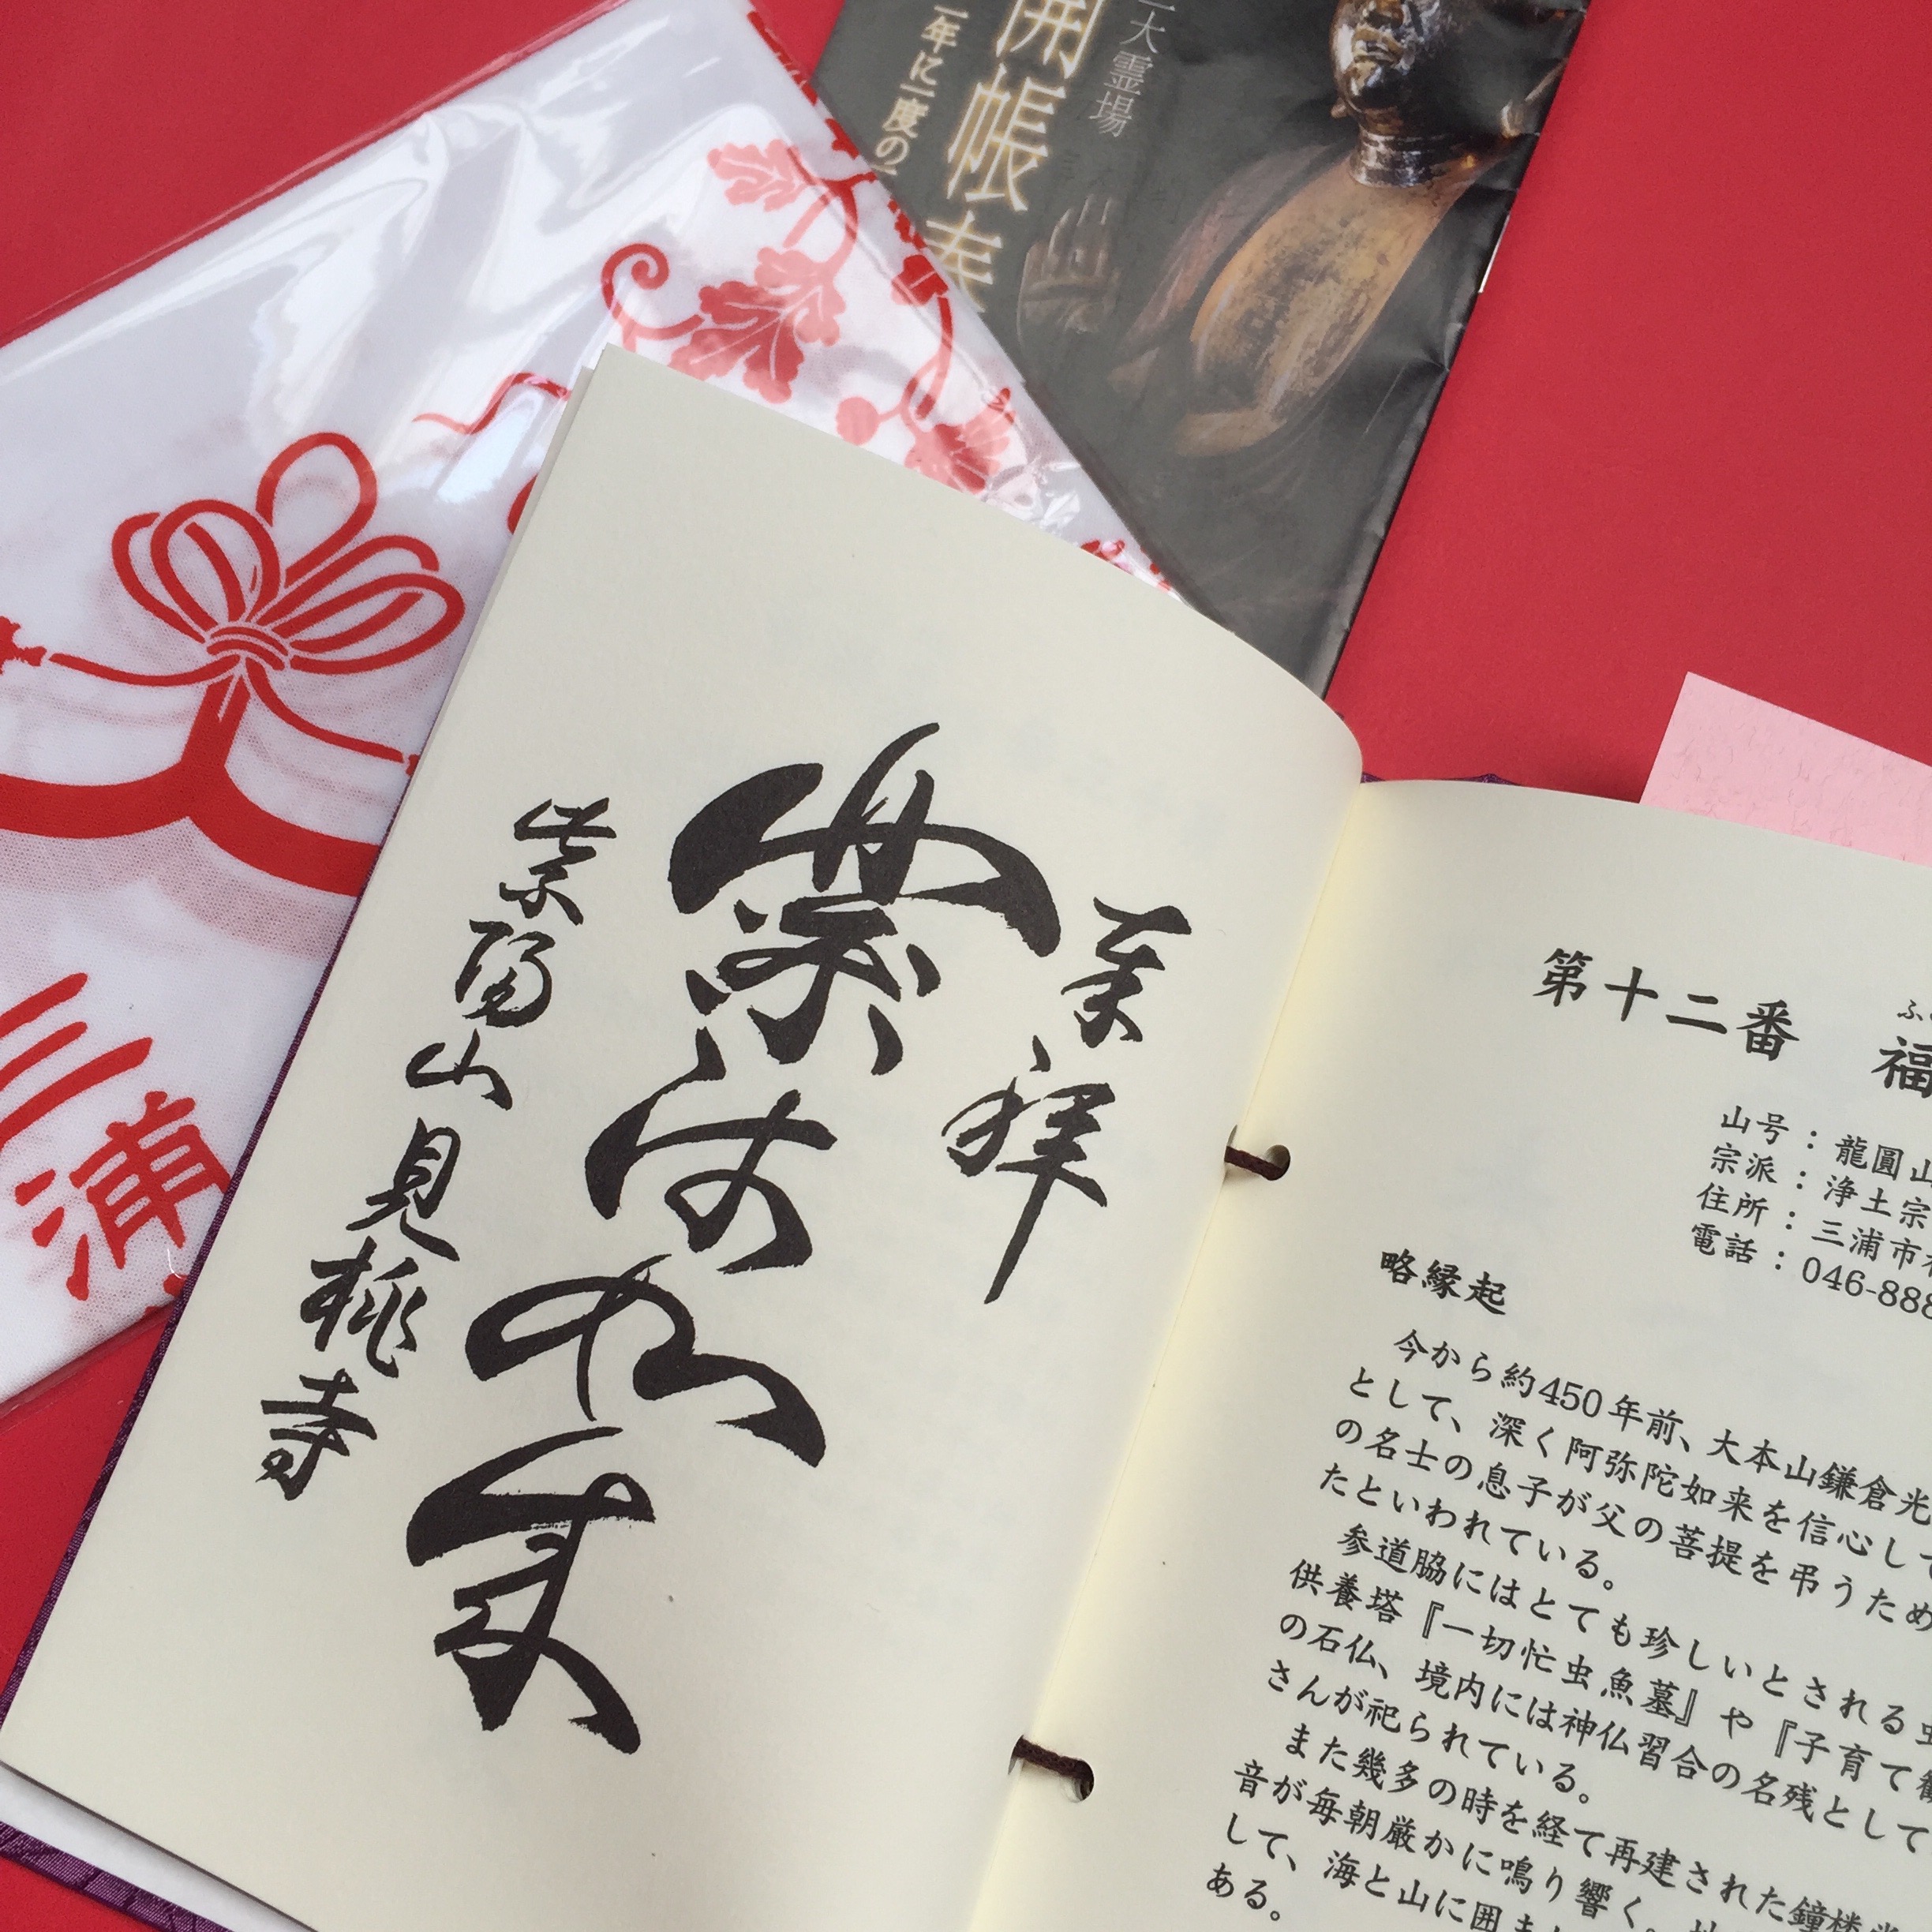 大霊場
開帳
年に一度の
三浦
奉拝
薬師如来
紫陽山見桃寺
第十二番 福
山号：龍圓山
宗派：浄土宗
住所：三浦市
電話：046-888
略縁起
今から約450年前、大本山鎌倉光
として、深く阿弥陀如来を信心して
の名士の息子が父の菩提を弔うため
たといわれている。
参道脇にはとても珍しいとされる虫
供養塔『一切忙虫魚墓』や『子育て観
の石仏、境内には神仏習合の名残として
さんが祀られている。
また幾多の時を経て再建された鐘楼堂
音が毎朝厳かに鳴り響く。
して、海と山に囲ま
ある。